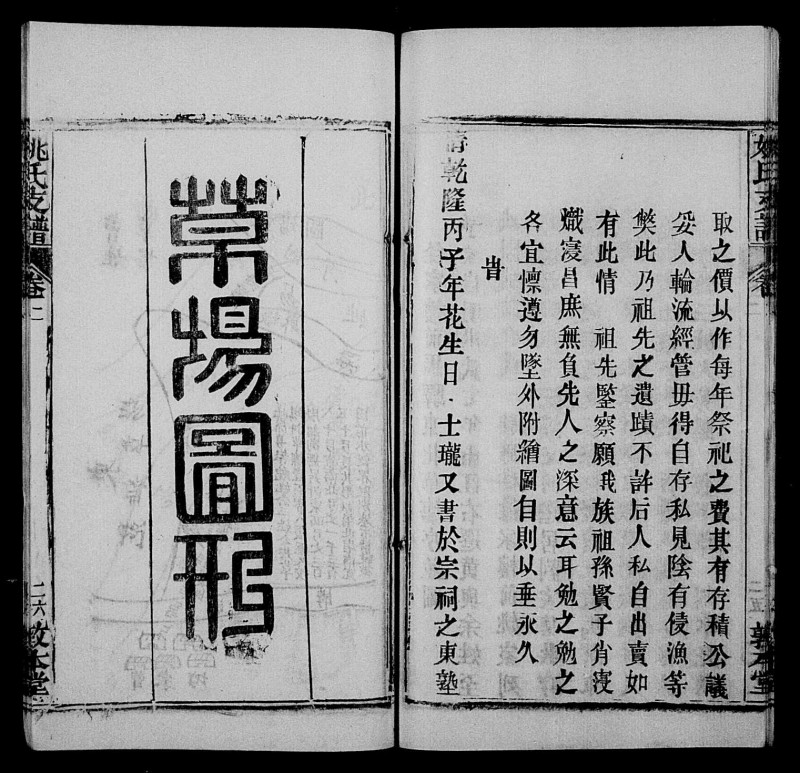 取之價以作每年祭祀之費其有存積公議
妥人輪流經管毋得自存私見陰有侵漁等
獘此乃祖先之遺蹟不許后人私自出賣如
有此情　祖先鑒察願我族祖孫賢子肖寖
熾寖昌庶無負先人之深意云耳勉之勉之
各宜懍遵勿墜外附繪圖自則以垂永久
旹
清乾隆丙子年花生日．士瓏又書於宗祠之東塾
姚氏支譜
卷二
二五
敦本堂
草場圖形
姚氏支譜
卷二
二六
敦本堂